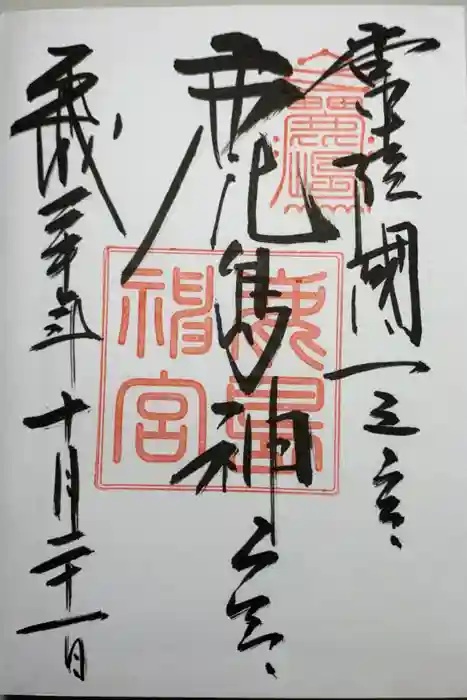 常陸國一之宮
鹿島神宮
平成二十年十月二十一日
鹿島神宮